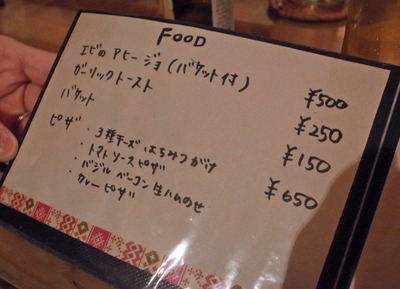 FOOD
エビの アヒージョ (バケット付) ¥500
ガーリックトースト ¥250
バケット ¥150
ピザ ¥650
・3種チーズ はちみつがけ
・トマトソースピザ
・バジル ベーコン 生ハムのせ
・カレーピザ